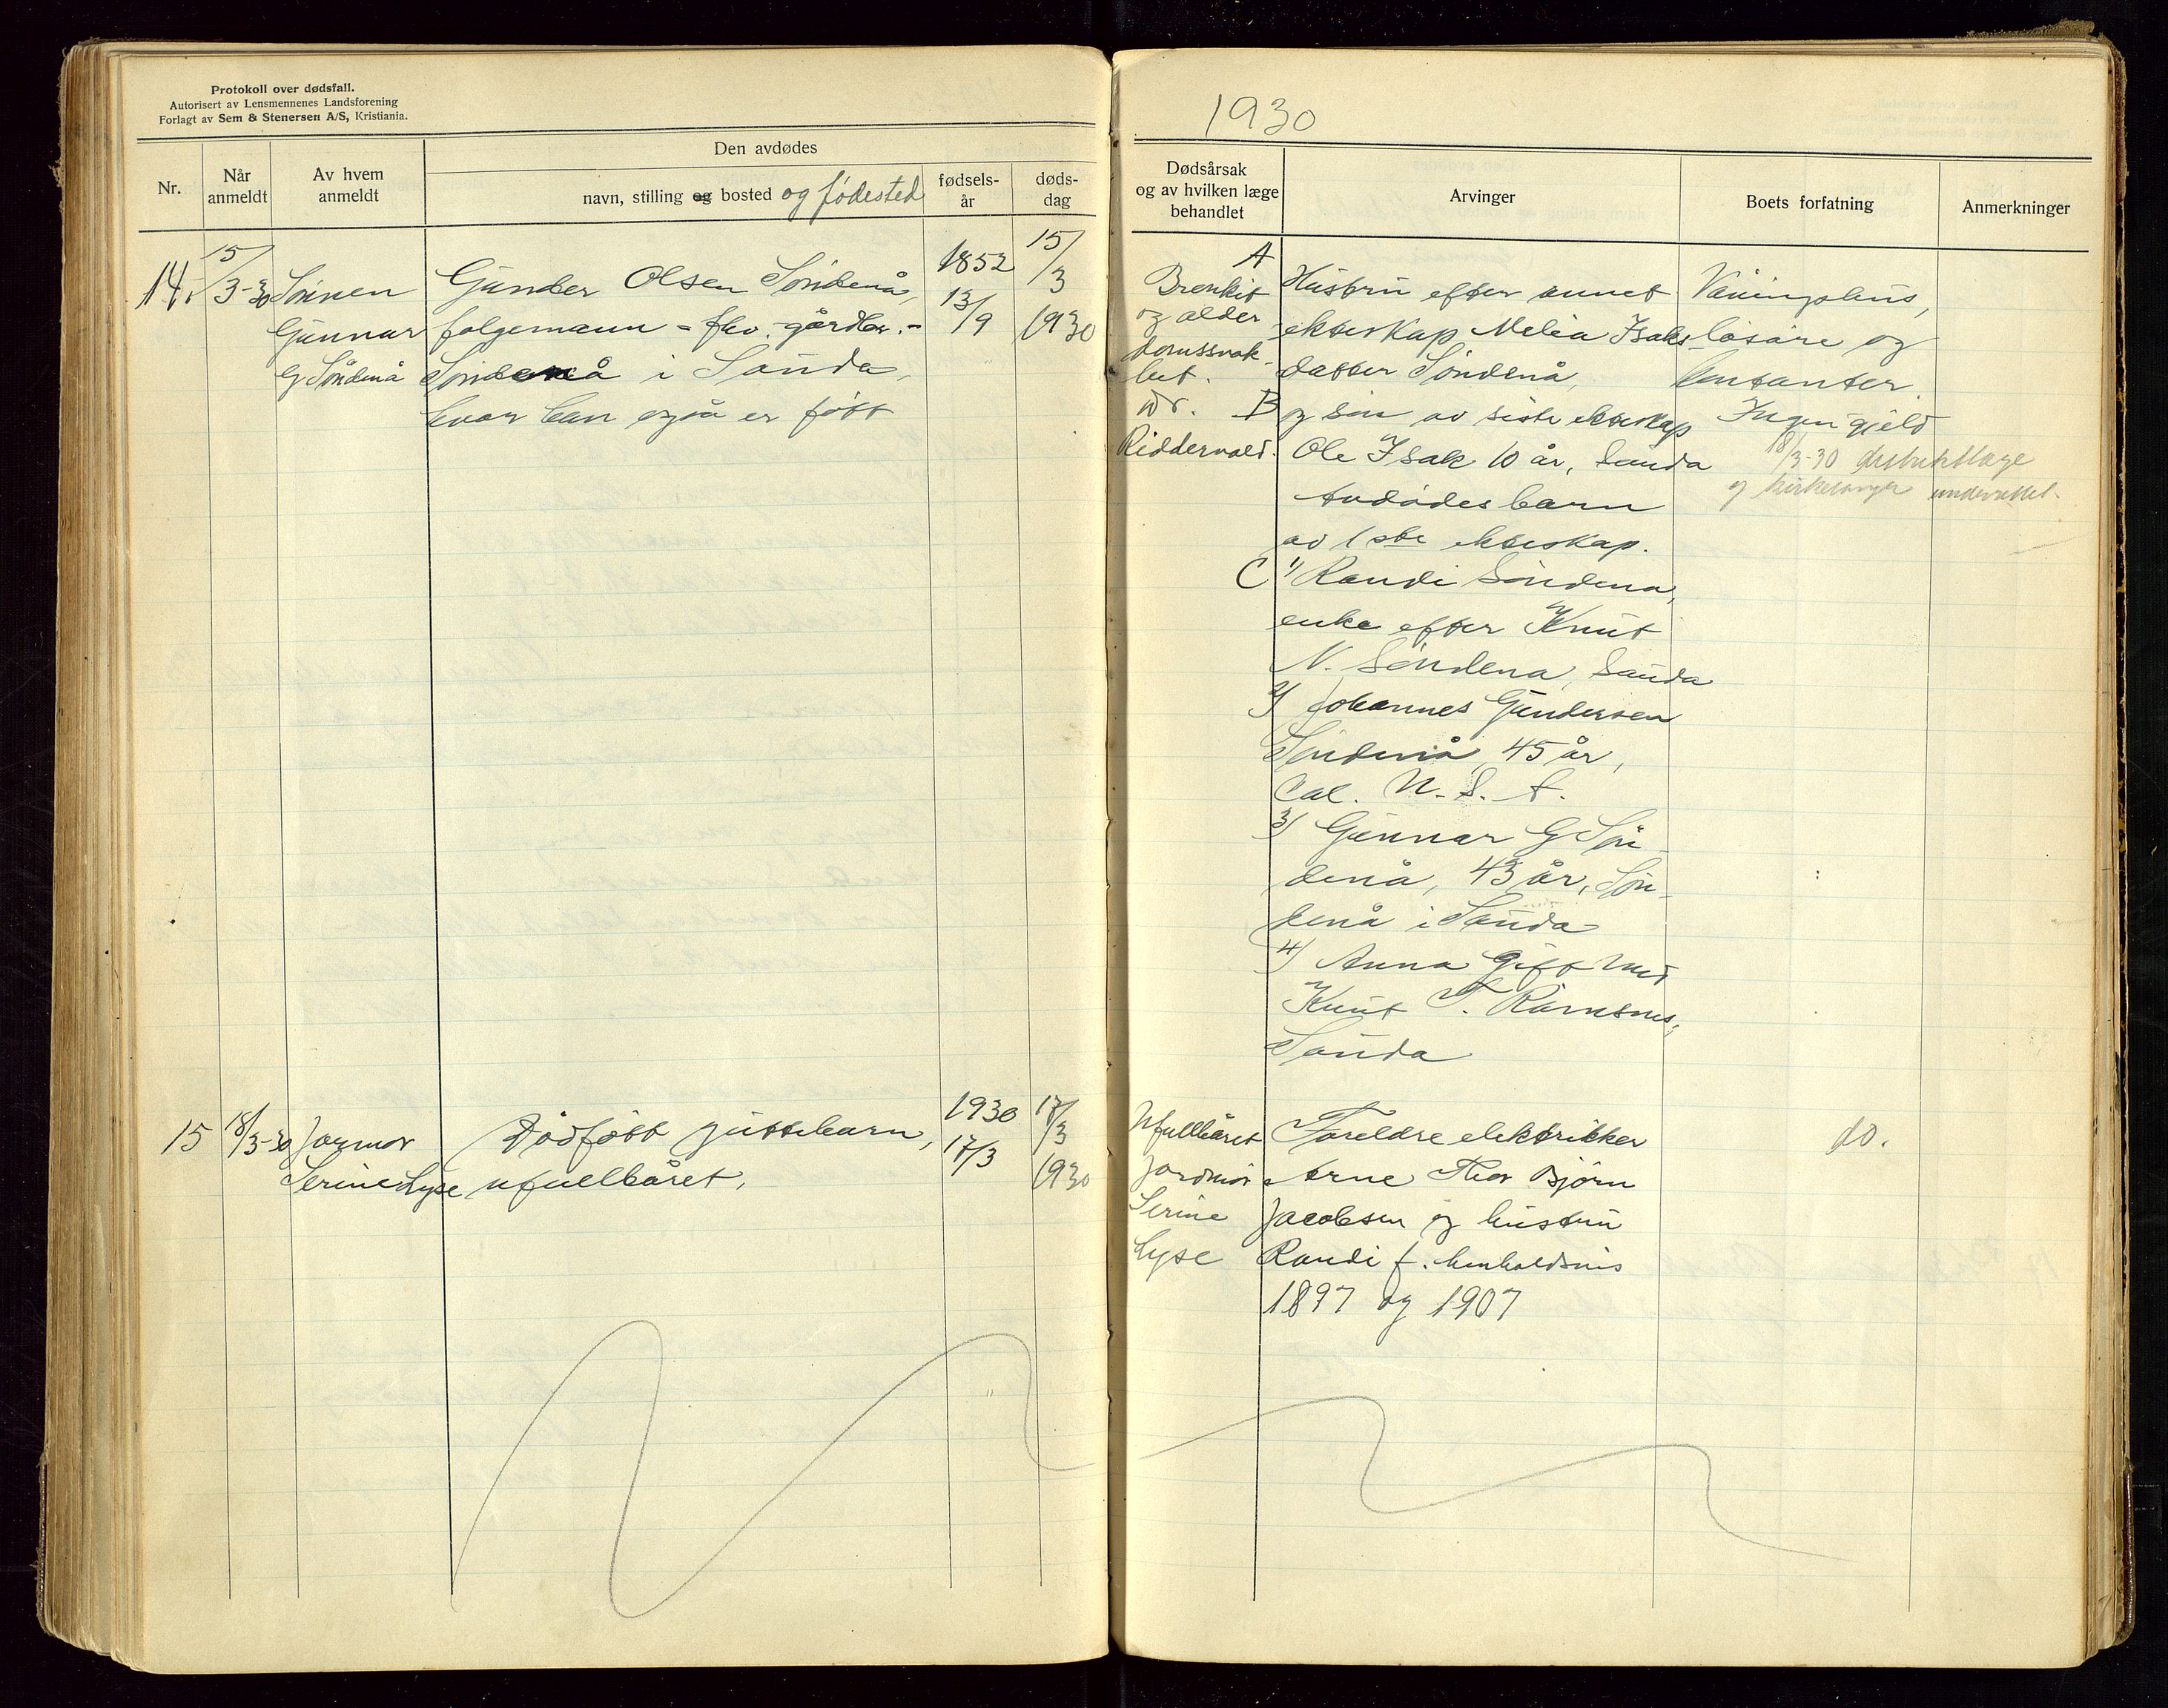 Protokoll over dødsfall.
Autorisert av Lensmennenes Landsforening
Forlagt av Sem & Stenersen A/S, Kristiania.
Nr.
Når anmeldt
Av hvem anmeldt
Den avdødes
navn, stilling og bosted og födested
fødsels-år
døds-dag
14.
15/3-30
Sönnen
Gunnar
G Söndenå
Gunder Olsen Söndenå,
folgemann - fhv. gårdbr. -
Söndenå i Sauda,
hvor han også er født
1852
13/9
15/3
1930
15
18/3-30
Jormor
Serine Lyse
Dödfött guttebarn,
ufullbåret.
1930
17/3
17/3
1930
1930
Dødsårsak
og av hvilken læge
behandlet
Arvinger
Boets forfatning
Anmerkninger
Bronkit
og alder
domssvak
het.
dr.
Riddervold.
A Hustru efter annet
ekteskap Melia Isaks
datter Söndenå,
B og sön av siste ekteskap
Ole Isak 10 år, Sauda
Avdödes barn
av 1ste ekteskap.
C 1) Randi Söndena,
enke efter Knut
N. Söndena, Sauda
2) Johannes Gundersen
Söndenå, 45 år,
Cal. U. S. A.
3) Gunnar G Sön
denå, 43 år, Sön
denå i Sauda
4) Anna gift med
Knut T.
Sauda
Våningshus,
lösöre og
kontanter.
Ingen gjeld
18/3-30 distriktslæge
og kirkesanger underrettet.
Ufullbåret
Jordmor
Serine
Lyse
Foreldre elektriker
Arne Thor Björn
Jacobsen og hustru
Randi f. henholdsvis
1897 og 1907
do.